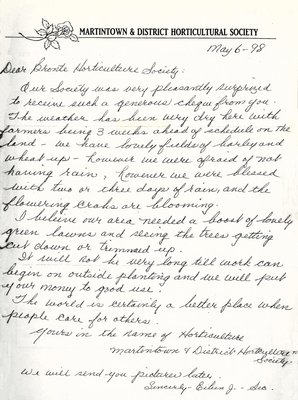 MARTINTOWN & DISTRICT HORTICULTURAL SOCIETY
May 6-98
Dear Bronte Horticulture Society:
Our Society was very pleasantly surprized
to receive such a generous cheque from you.
The weather has been very dry here with
farmers being 3 weeks ahead of schedule on the
land - we have lovely fields of barley and
wheat up - however we were afraid of not
having rain, however we were blessed
with two or three days of rain, and the
flowering crabs are blooming.
I believe our area needed a boost of lovely
green lawns and seeing the trees getting
cut down or trimmed up.
It will not be very long till work can
begin on outside planting and we will put
your money to good use.
The world is certainly a better place when
people care for others.
Yours in the name of Horticulture
Martintown & District Horticulture
Society
We will send you pictures later.
Sincerely - Eileen J - Sec.